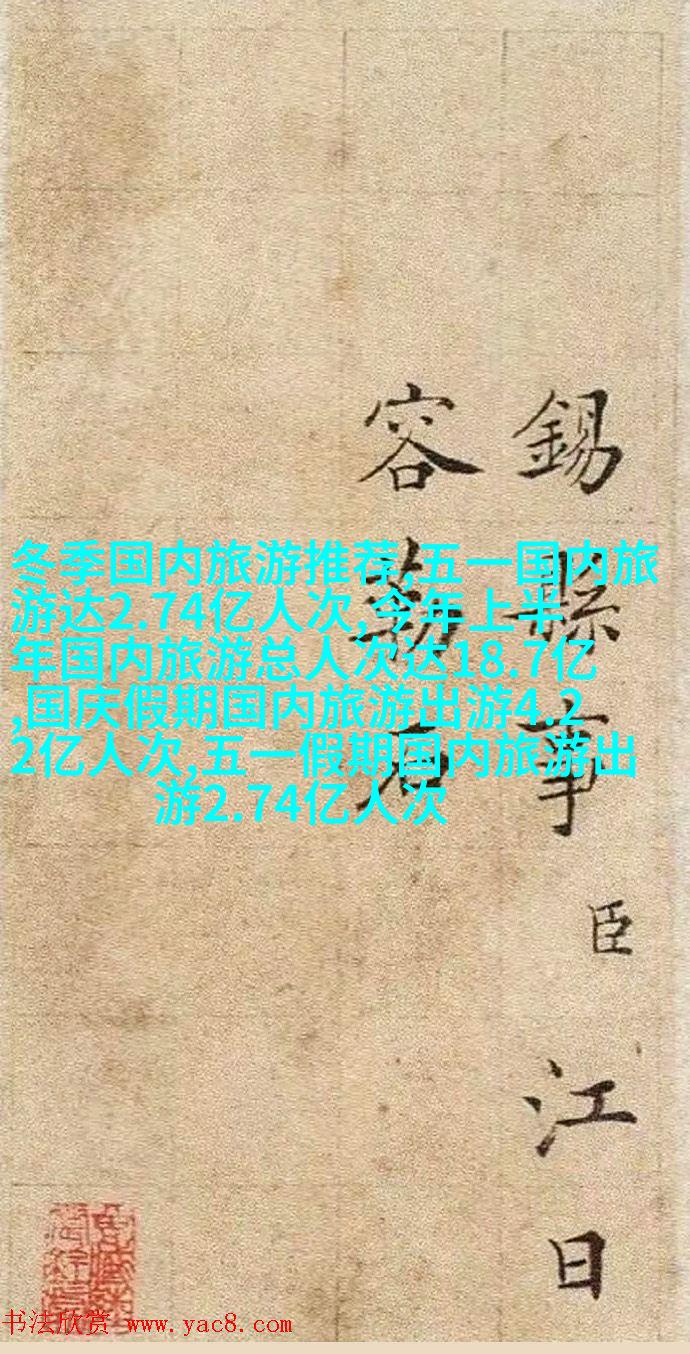 冬季国内旅游推荐,五一国内旅
游达2.74亿人次,今年上半
年国内旅游总人次达18.7亿
,国庆假期国内旅游出游4.2
2亿人次,五一假期国内旅游出
游2.74亿人次
錫縣事臣江日
容勒石
书法欣赏 www.yac8.com